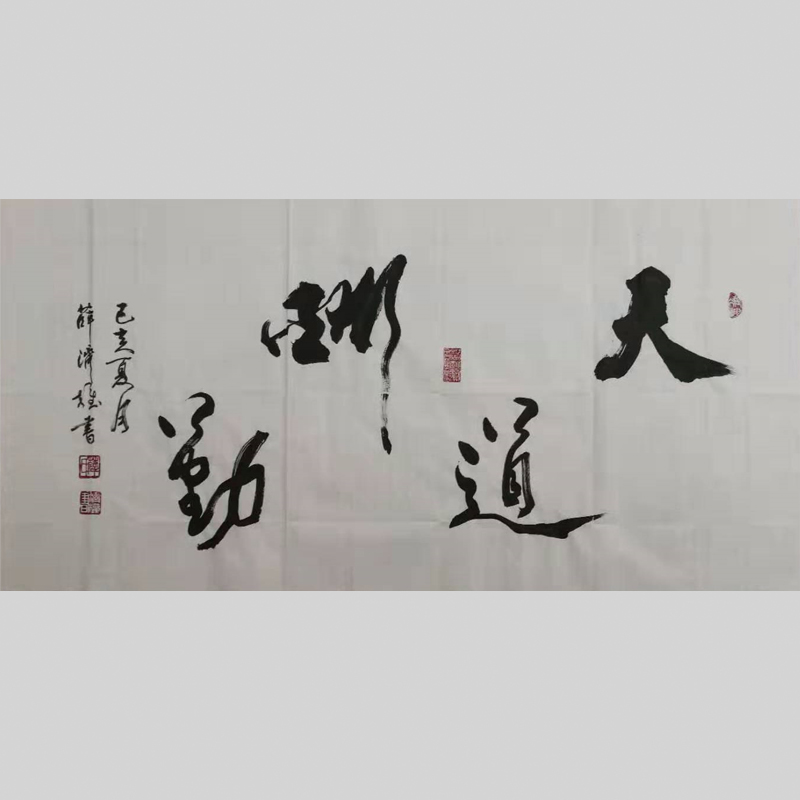 天道酬勤
己亥夏月
薛济雄書